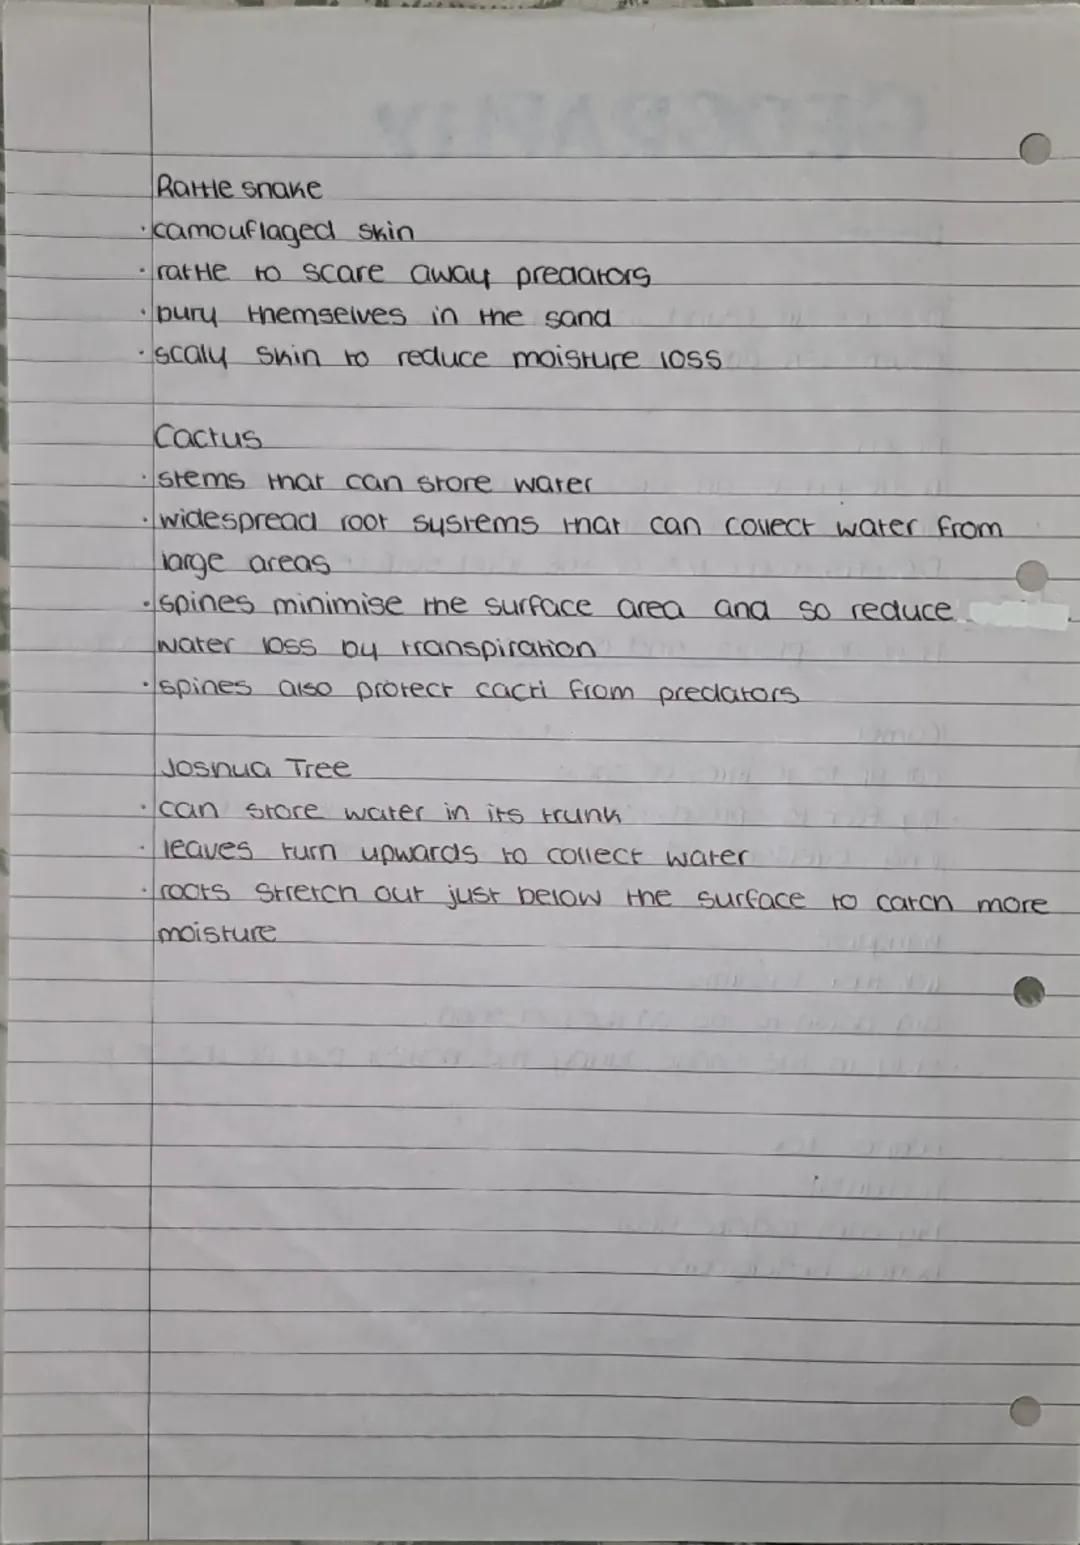 Rattle snake
· camouflaged skin
· rattle to scare away predators
· bury themselves in the sand
· scaly skin to reduce moisture loss
Cactus
· stems that can store water
· widespread root systems that can collect water from
large areas
· spines minimise the surface area and so reduce
water loss by transpiration
· spines also protect cacti from predators
Joshua Tree
· can store water in its trunk
· leaves turn upwards to collect water
· roots stretch out just below the surface to catch more
moisture